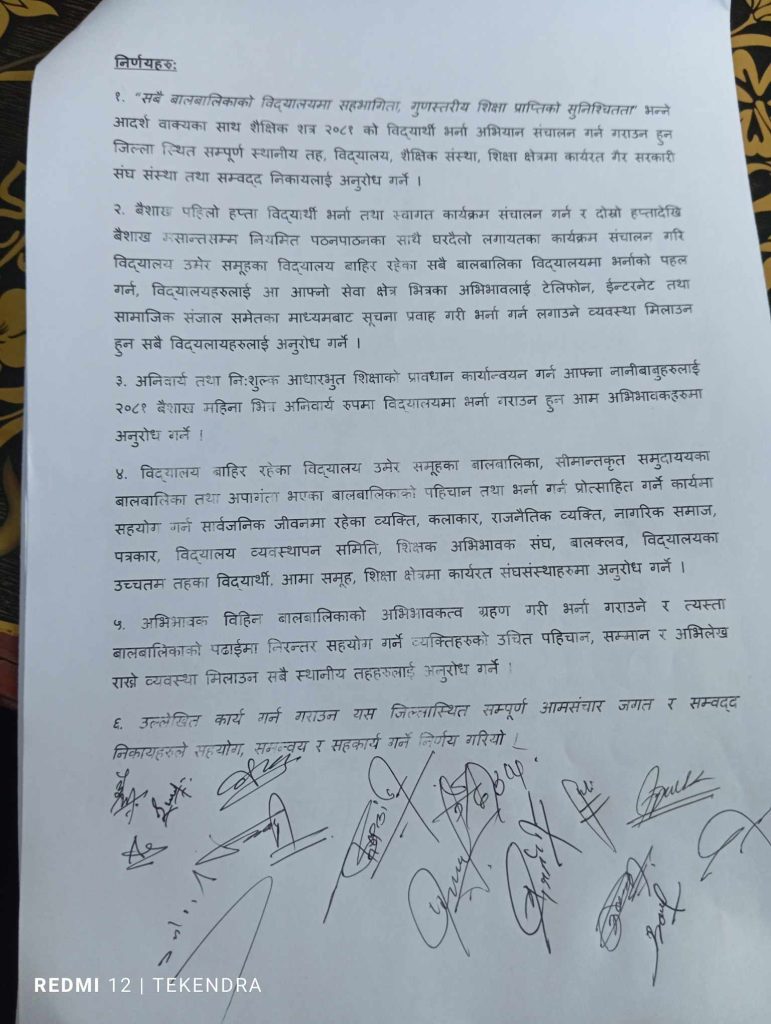 निर्णयहरुः
१. "सबै बालबालिकाको विद्यालयमा सहभागिता, गुणस्तरीय शिक्षा प्राप्तिको सुनिश्चितता" भन्ने
आदर्श वाक्यका साथ शैक्षिक शत्र २०८१ को विद्यार्थी भर्ना अभियान संचालन गर्न गराउन हुन
जिल्ला स्थित सम्पूर्ण स्थानीय तह, विद्यालय, शैक्षिक संस्था, शिक्षा क्षेत्रमा कार्यरत गैर सरकारी
संघ संस्था तथा सम्वद्द निकायलाई अनुरोध गर्ने ।
२. बैशाख पहिलो हप्ता विद्यार्थी भर्ना तथा स्वागत कार्यक्रम संचालन गर्न र दोस्रो हप्तादेखि
बैशाख मसान्तसम्म नियमित पठनपाठनका साथै घरदैलो लगायतका कार्यक्रम संचालन गरि
विद्यालय उमेर समूहका विद्यालय बाहिर रहेका सबै बालबालिका विद्यालयमा भर्नाको पहल
गर्न, विद्यालयहरुलाई आ आफ्नो सेवा क्षेत्र भित्रका अभिभावलाई टेलिफोन, ईन्टरनेट तथा
सामाजिक संजाल समेतका माध्यमबाट सूचना प्रवाह गरी भर्ना गर्न लगाउने व्यवस्था मिलाउन
हुन सबै विद्यलायहरुलाई अनुरोध गर्ने ।
३. अनिवार्य तथा नि:शुल्क आधारभुत शिक्षाको प्रावधान कार्यान्वयन गर्न आफ्ना नानीबाबुहरुलाई
२०८१ बैशाख महिना भित्र अनिवार्य रुपमा विद्यालयमा भर्ना गराउन हुन आम अभिभावकहरुमा
अनुरोध गर्ने ।
४. विद्यालय बाहिर रहेका विद्यालय उमेर समूहका बालबालिका, सीमान्तकृत समुदाययका
बालबालिका तथा अपागंता भएका बालबालिकाको पहिचान तथा भर्ना गर्न प्रोत्साहित गर्ने कार्यमा
सहयोग गर्न सार्वजनिक जीवनमा रहेका व्यक्ति, कलाकार, राजनैतिक व्यक्ति, नागरिक समाज,
पत्रकार, विद्यालय व्यवस्थापन समिति, शिक्षक अभिभावक संघ, बालक्लव, विद्यालयका
उच्चतम तहका विद्यार्थी, आमा समूह, शिक्षा क्षेत्रमा कार्यरत संघसंस्थाहरुमा अनुरोध गर्ने ।
५. अभिभावक विहिन बालबालिकाको अभिभावकत्व ग्रहण गरी भर्ना गराउने र त्यस्ता
बालबालिकाको पढाईमा निरन्तर सहयोग गर्ने व्यक्तिहरुको उचित पहिचान, सम्मान र अभिलेख
राख्ने व्यवस्था मिलाउन सबै स्थानीय तहहरुलाई अनुरोध गर्ने ।
६. उल्लेखित कार्य गर्न गराउन यस जिल्लास्थित सम्पूर्ण आमसंचार जगत र सम्वद्द
निकायहरुले सहयोग, समन्वय र सहकार्य गर्ने निर्णय गरियो ।
REDMI 12 | TEKENDRA